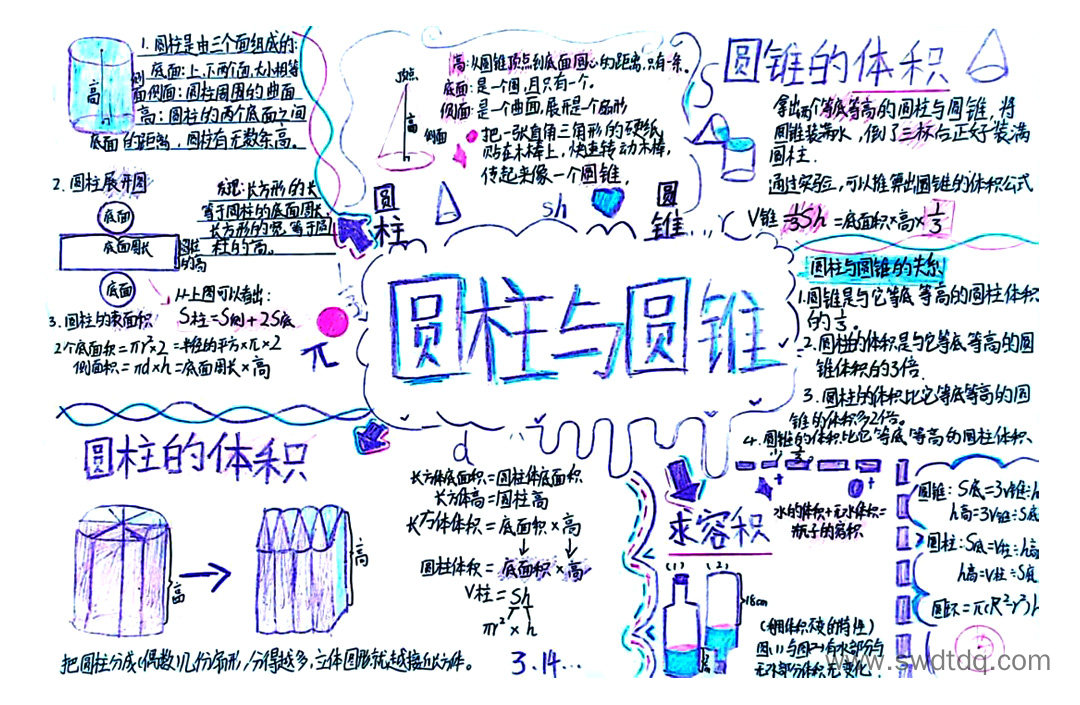 1. 圆柱是由三个面组成的:
底面: 上、下两个面,大小相等
侧面: 圆柱周围的曲面
高: 圆柱的两个底面之间
的距离, 圆柱有无数条高。
高
底面
2. 圆柱展开图
底面
底面周长
底面
圆柱的高
发现: 长方形的长
等于圆柱的底面周长,
长方形的宽, 等于圆
柱的高。
从上图可以看出:
S柱=S侧+2S底
3. 圆柱的表面积
2个底面积=πr²×2=半径的平方×π×2
侧面积=πd×h=底面周长×高
顶点
高
侧面
高: 从圆锥顶点到底面圆心的距离,只有一条。
底面: 是一个圆,且只有一个。
侧面: 是一个曲面,展形是个扇形
把一张直角三角形的硬纸
贴在木棒上, 快速转动木棒,
传起来像一个圆锥.
圆柱
sh
圆锥
圆柱与圆锥
π
d
圆锥的体积
拿出两个等底等高的圆柱与圆锥, 将
圆锥装满水, 倒了三杯后正好装满
圆柱.
通过实验, 可以推算出圆锥的体积公式
V锥 1/3Sh =底面积×高×1/3
圆柱与圆锥的关系
1.圆锥是与它等底等高的圆柱体积
的1/3。
2.圆柱的体积是与它等底等高的圆
锥体积的3倍.
3.圆柱的体积比它等底等高的圆
锥的体积多2倍。
4.圆锥的体积比它等底等高的圆柱体积、
少2/3。
圆柱的体积
高
高
把圆柱分成(偶数)几份扇形,分得越多,立体图形就越接近长方体。
长方体底面积=圆柱体底面积
长方体高=圆柱高
长方体体积=底面积×高
圆柱体积=底面积×高
V柱=Sh
πr²×h
3.14...
求容积
水的体积+无水体积=
瓶子的容积
(1) (2)
18cm
图(1)与图(2)有水部分与
无水部分体积无变化.
圆锥: S底=3V锥÷h
h高=3V锥÷S底
圆柱: S底=V柱÷h高
h高=V柱÷S底
圆环=π(R²-r²)h
www.swdtdq.com